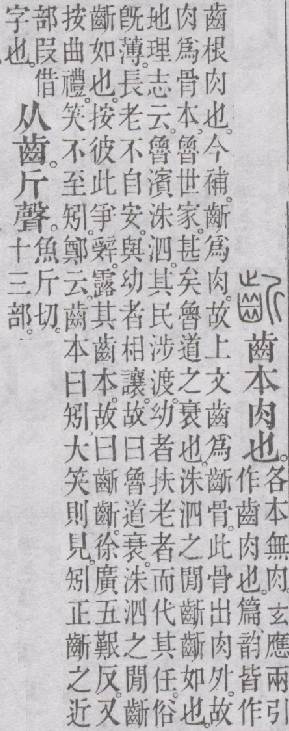 齗 齒本肉也。
各本無肉。玄應兩引
作齒肉也。篇韵皆作
齒根肉也。今補。齗爲肉。故上文齒爲齗骨。此骨出肉外。故
肉爲骨本。魯世家。甚矣魯道之衰也。洙泗之閒齗齗如也。
地理志云。魯濱洙泗。其民涉渡。幼者扶老者而代其任。俗
旣薄。長老不自安。與幼者相讓。故曰魯道衰。洙泗之閒齗
齗如也。按彼此爭辭。露其齒本。故曰齗齗。徐廣五艱反。又
按曲禮。笑不至矧。鄭云。齒本曰矧。大笑則見。矧正齗之近
部叚借
字也。
从齒斤聲。
魚斤切。
十三部。